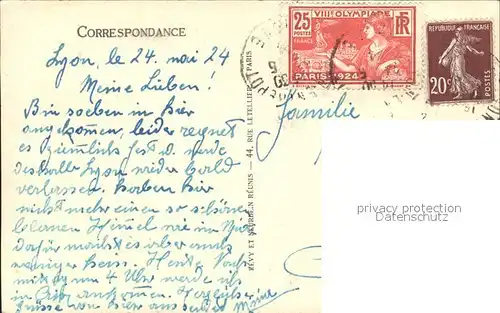 CORRESPONDANCE
Lyon, le 24. mai 24
Meine Lieben!
Bin soeben in hier
angekommen, leider regnet
es ziemlich fest u. werde
deshalb Lyon wieder bald
verlassen. haben hier
nicht mehr einen so schönen
blauen Himmel wie im
dafür macht es aber auch
weniger heiss. Heute
mittag um 4 Uhr werde ich
in ankommen. Herzliche
Grüsse von hier aus
LÉVY ET NEURDEIN RÉUNIS — 44, RUE LETELLIER, PARIS
25
POSTES
VIIIe OLYMPIADE
RF
FRANCE
PARIS 1924
RÉPUBLIQUE FRANÇAISE
20c
POSTES
Familie
privacy protection
Datenschutz